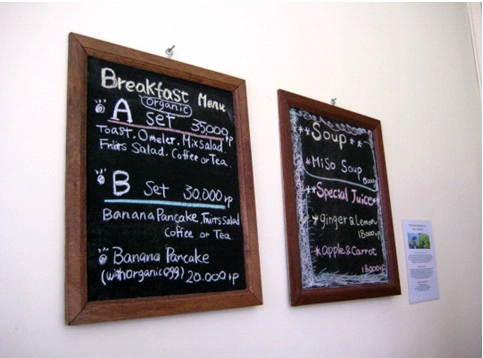 Breakfast Menu
organic
A set 35000 rp
Toast. Omelet. Mix salad.
Fruits Salad. Coffee or Tea.
B Set 30.000 rp
Banana Pancake. Fruits Salad
Coffee or Tea.
Banana Pancake
(with organic egg) 20.000 rp
Soup
Miso Soup
Special Juice
ginger & Lemon
18000 rp
apple & Carrot
18000 rp